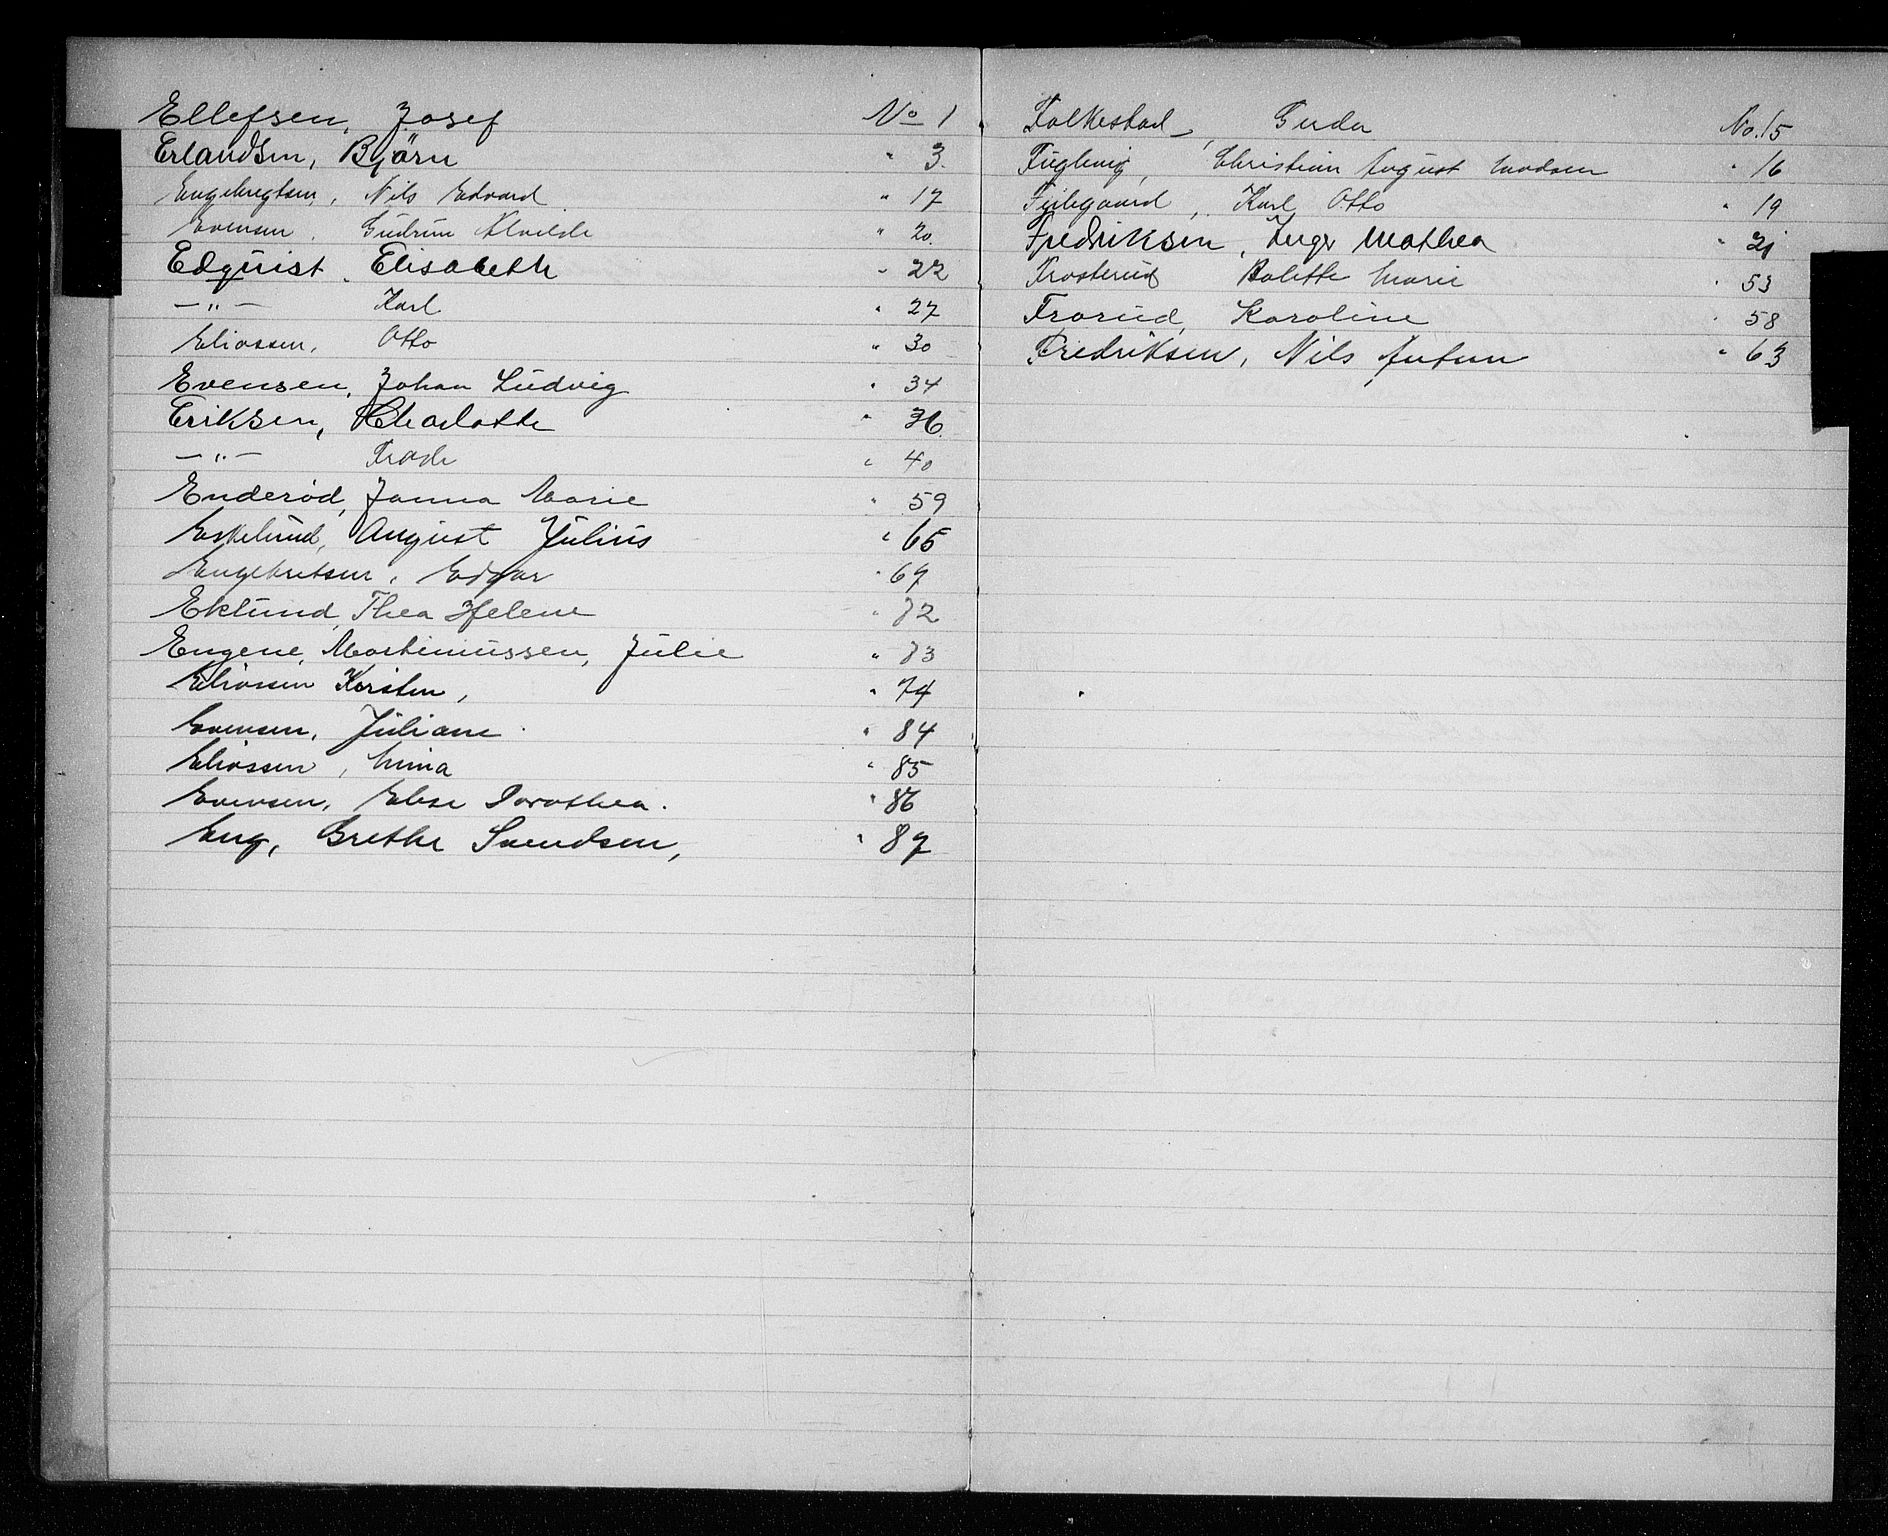 Ellefsen, Josef No 1
Erlandsen, Bjørn " 3.
Engebregtsen, Nils Edvard " 17
Evensen, Gudrun Alvilde " 20.
Edquist, Elisabeth " 22
—"— Karl " 27
Eliassen, Otto " 30
Evensen, Johan Ludvig " 34
Eriksen, Charlotte " 36.
—"— Frode " 40
Enderød, Janna Marie " 59
Eskelund, August Julius " 65
Engebretsen, Edgar " 67
Eklund, Thea Helene " 72
Engene, Martinussen, Julie " 73
Eliassen Kirsten, " 74
Evensen, Juliane " 84
Eliassen, Mina " 85
Evensen, Else Dorothea. " 86
Eng, Grethe Svendsen, " 87
Falkestad, Guda No. 15
Fuglevig, Christian August Madsen " 16
Karl Otto " 19
Fredriksen, Inger Mathea " 21
Frosterud Bolette Marie " 53
Frorud, Karoline " 58
Fredriksen, Nils Antun " 63